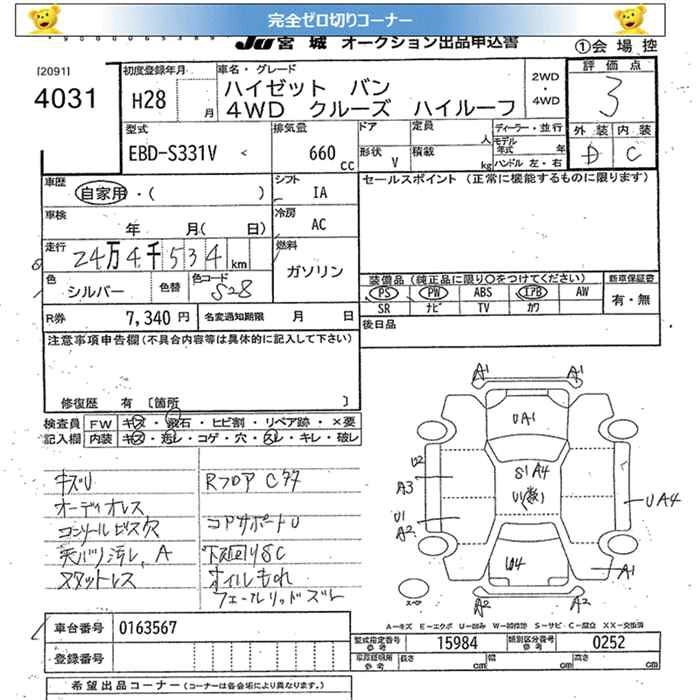 完全ゼロ切りコーナー
JU宮城 オークション出品申込書
①会場控
[2091]
4031
初度登録年月
H28 月
車名・グレード
ハイゼット バン
4WD クルーズ ハイルーフ
2WD
・
4WD
評価点
3
外装 内装
D C
型式
EBD-S331V
排気量
660 cc
ドア
形状 V
定員 人
積載 kg
ディーラー・並行
モデル年式 年
ハンドル 左・右
車歴
自家用・( )
シフト
IA
セールスポイント (正常に機能するものに限ります)
車検
年 月( 日)
冷房
AC
走行
24万4千534 km
燃料
ガソリン
色
シルバー
色替
色コード
S28
装備品 (純正品に限り○をつけてください)
新車保証書
PS PW ABS エアB AW
有・無
SR ナビ TV カワ
R券 7,340 円
名変通知期限 月 日
後日品
注意事項申告欄 (不具合内容等は具体的に記入して下さい)
修復歴 有 [箇所 ]
検査員記入欄
FW キズ・飛石・ヒビ割・リペア跡・×要
内装 キズ・汚レ・コゲ・穴・スレ・キレ・破レ
キズU
オーディオレス
コンソールビス欠
天バリ汚レ、A
スタットレス
Rフロア C
コアサポートU
下廻りSC
オイルもれ
フューエルリッドズレ
A1 A1
UA1
U2
A3
S1 A4
U1
A2
UA4
U4
A1
A2 A2
スペア
A-キズ E-エクボ U-凹み W-補修跡 S-サビ C-腐食 XX-交換済
車台番号 0163567
登録番号
型式指定番号 参考 15984
類別区分番号 参考 0252
長さ cm
幅 cm
高さ cm
希望出品コーナー (コーナーは各会場により異なります。)